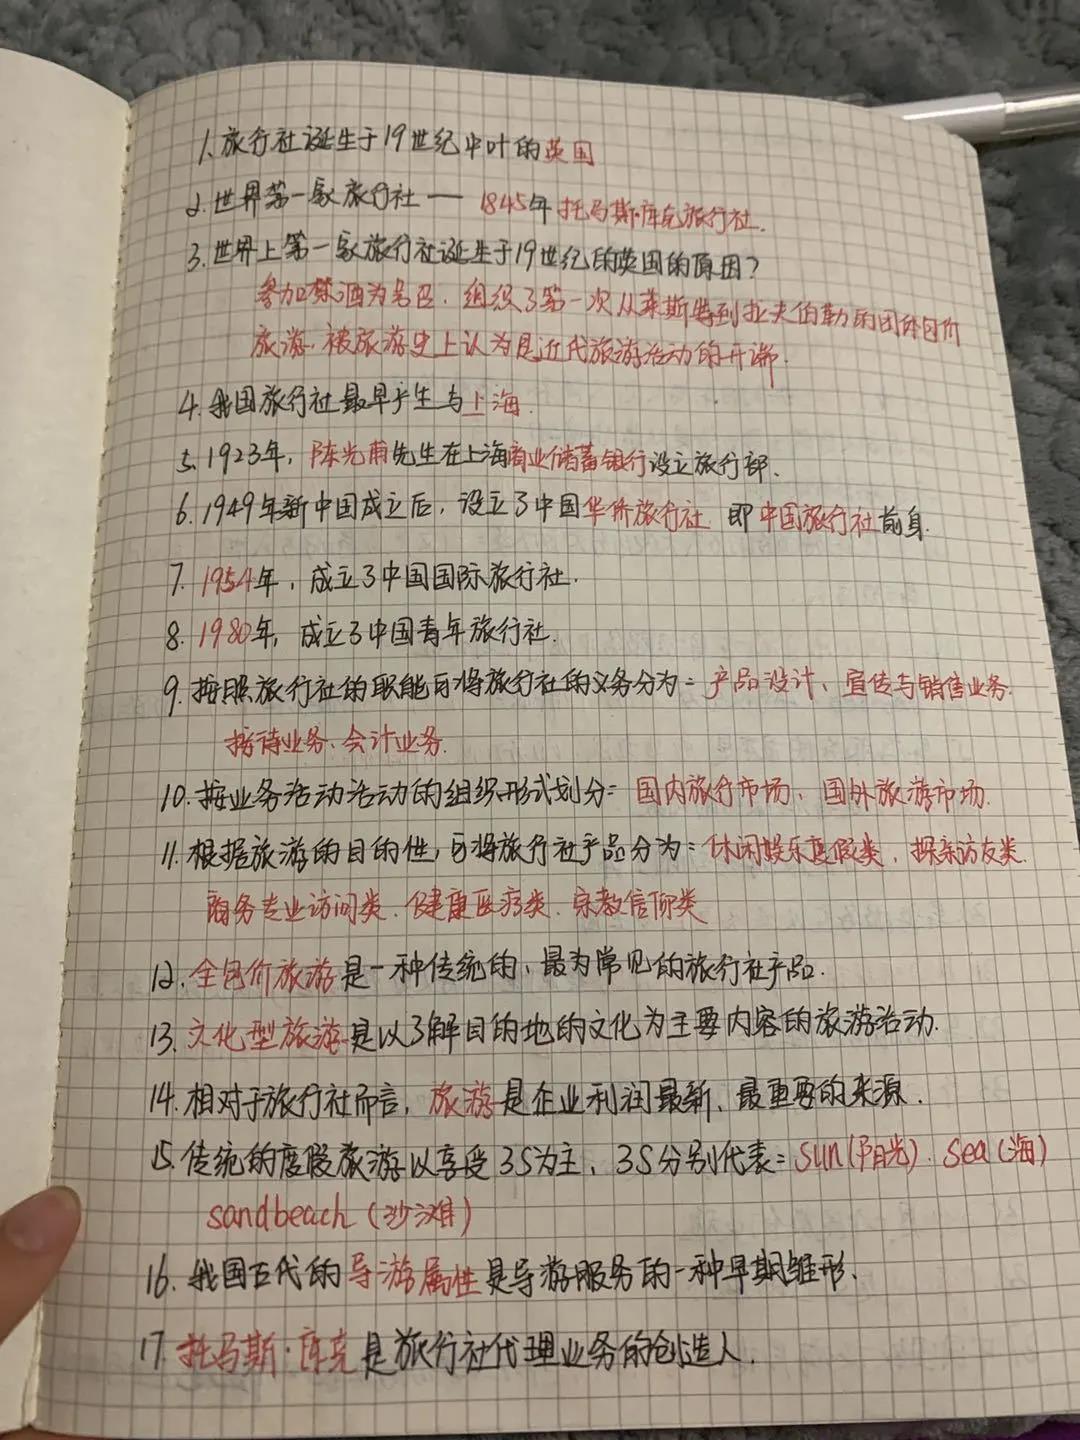 1.旅行社诞生于19世纪中叶的英国
2.世界第一家旅行社——1845年托马斯·库克旅行社.
3.世界上第一家旅行社诞生于19世纪的英国的原因?
参加禁酒为名召.组织了第一次从莱斯特到拉夫伯勒的团体包价
旅游.被旅游史上认为是近代旅游活动的开端.
4.我国旅行社最早产生与上海.
5.1923年,陈光甫先生在上海商业储蓄银行设立旅行部.
6.1949年新中国成立后,设立了中国华侨旅行社 即中国旅行社前身.
7.1954年,成立了中国国际旅行社.
8.1980年,成立了中国青年旅行社.
9.按照旅行社的职能可将旅行社的义务分为:产品设计、宣传与销售业务.
接待业务、会计业务.
10.按业务活动活动的组织形式划分:国内旅行市场、国外旅游市场.
11.根据旅游的目的性,可将旅行社产品分为:休闲娱乐度假类.探亲访友类.
商务专业访问类.健康医疗类.宗教信仰类
12.全包价旅游是一种传统的,最为常见的旅行社产品.
13.文化型旅游是以了解目的地的文化为主要内容的旅游活动.
14.相对于旅行社而言,旅游是企业利润最新、最重要的来源.
15.传统的度假旅游以享受3S为主,3S分别代表:sun(阳光).sea(海)
sandbeach(沙滩)
16.我国古代的导游属性是导游服务的一种早期雏形.
17.托马斯·库克是旅行社代理业务的创造人.